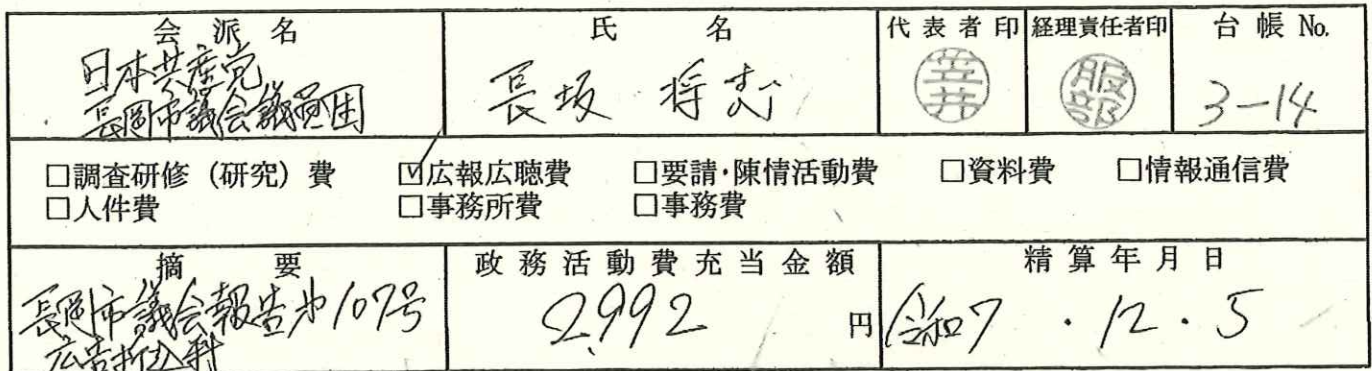 会派名 氏名 代表者印 経理責任者印 台帳 No.
日本共産党
長岡市議会議員団
長坂 将志
笠井
服部
3-14
□調査研修(研究)費 ☑広報広聴費 □要請・陳情活動費 □資料費 □情報通信費
□人件費 □事務所費 □事務費
摘要 政務活動費充当金額 精算年月日
長岡市議会報告第107号
広告折込料
2,992 円
令和7・12・5